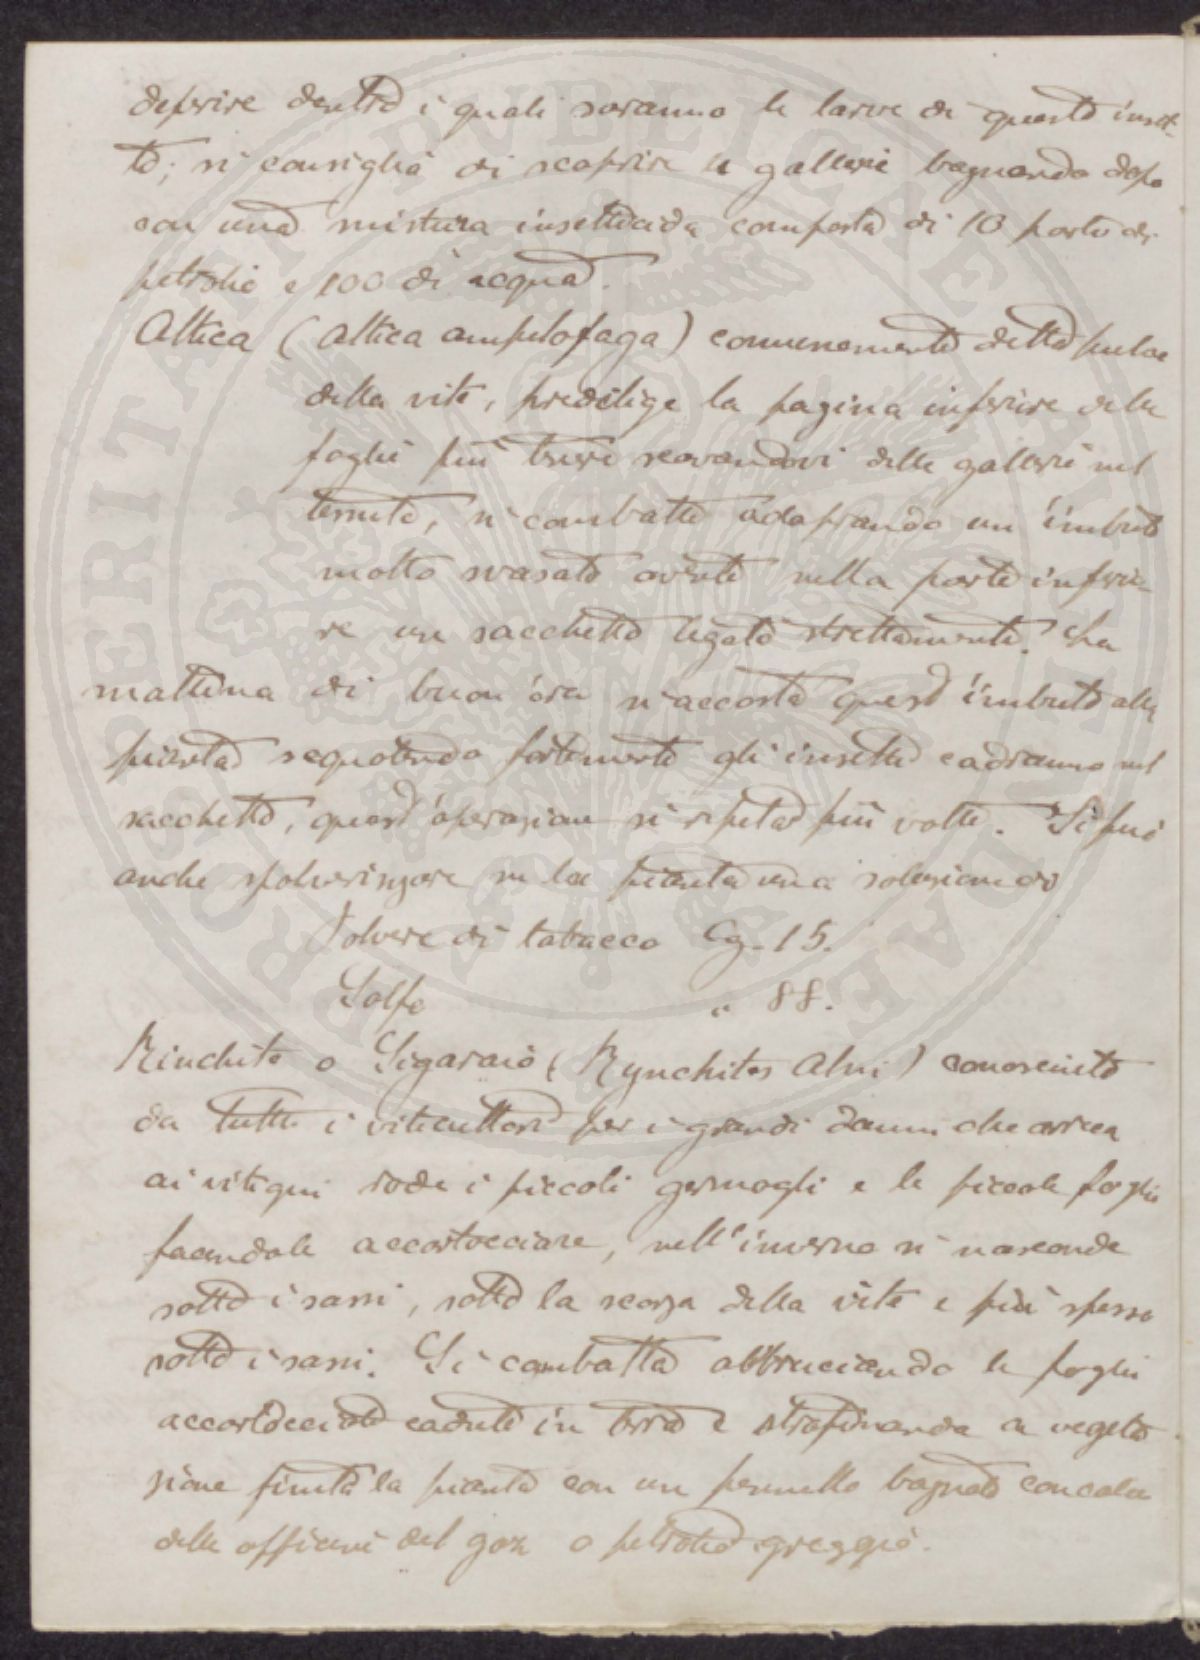 deperire dentro i quali saranno le larve di questo inset-
to; si consiglia di scoprire le gallerie bagnando dopo
con una mistura insetticida composta di 10 parti di
petrolio e 100 di acqua.
Altica (altica ampelofaga) comunemente detta pulce
della vite, predilige la pagina inferiore delle
foglie più tenere scavandovi delle gallerie nel
tessuto, si combatte adoprando un imbuto
molto svasato avente nella parte inferio-
re un sacchetto legato strettamente. La
mattina di buon'ora si accosta quest'imbuto alla
pianta sequotendo fortemente gli insetti cadranno nel
sacchetto, quest'operazione si ripeta più volte. Si può
anche spolverizzare su la pianta una soluzione di
Polvere di tabacco Cg. 15.
Solfo " 88.
Rinchite o Sigaraio (Rynchites Alni) conosciuto
da tutti i viticultori per i grandi danni che arreca
ai vitigni rode i piccoli germogli e le piccole foglie
facendole accartocciare, nell'inverno si nasconde
sotto i sassi, sotto la scorza della vite e più spesso
sotto i sassi. Si combatte abbruciando le foglie
accartocciate cadute in terra e strofinando a vegeta
zione finita la pianta con un pennello bagnato con
delle officine del gaz o petrolio greggio.